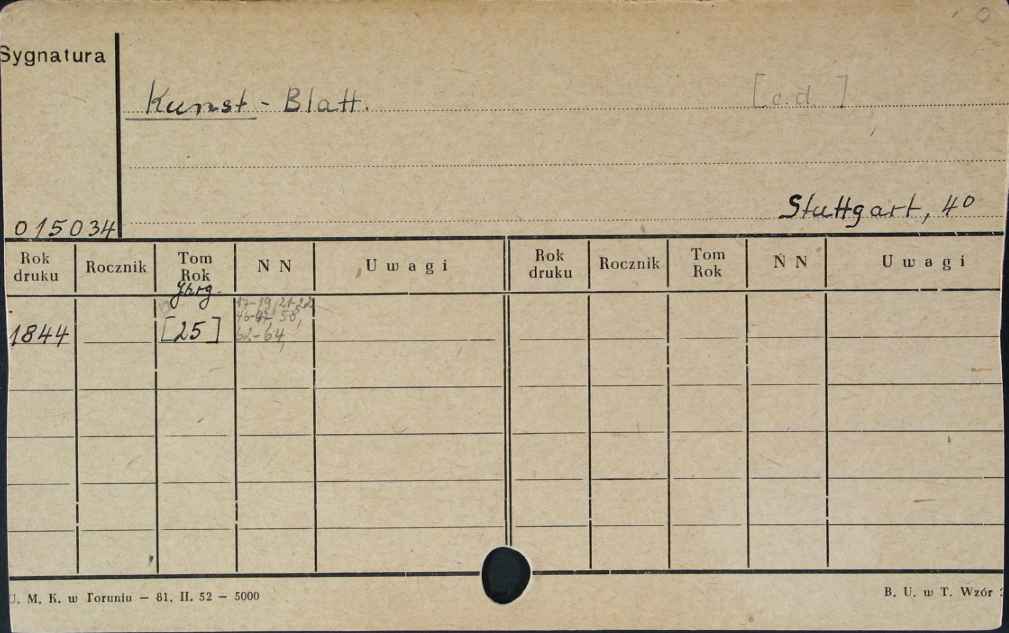 Sygnatura
Kunst - Blatt. [c.d.]
Stuttgart, 4º
015034
Rok druku Rocznik Tom Rok N N Uwagi Rok druku Rocznik Tom Rok N N Uwagi
Jhrg.
17-19, 21-22,
58,
1844 [25] 62-64
U. M. K. w Toruniu — 81. II. 52 — 5000 B. U. w T. Wzór